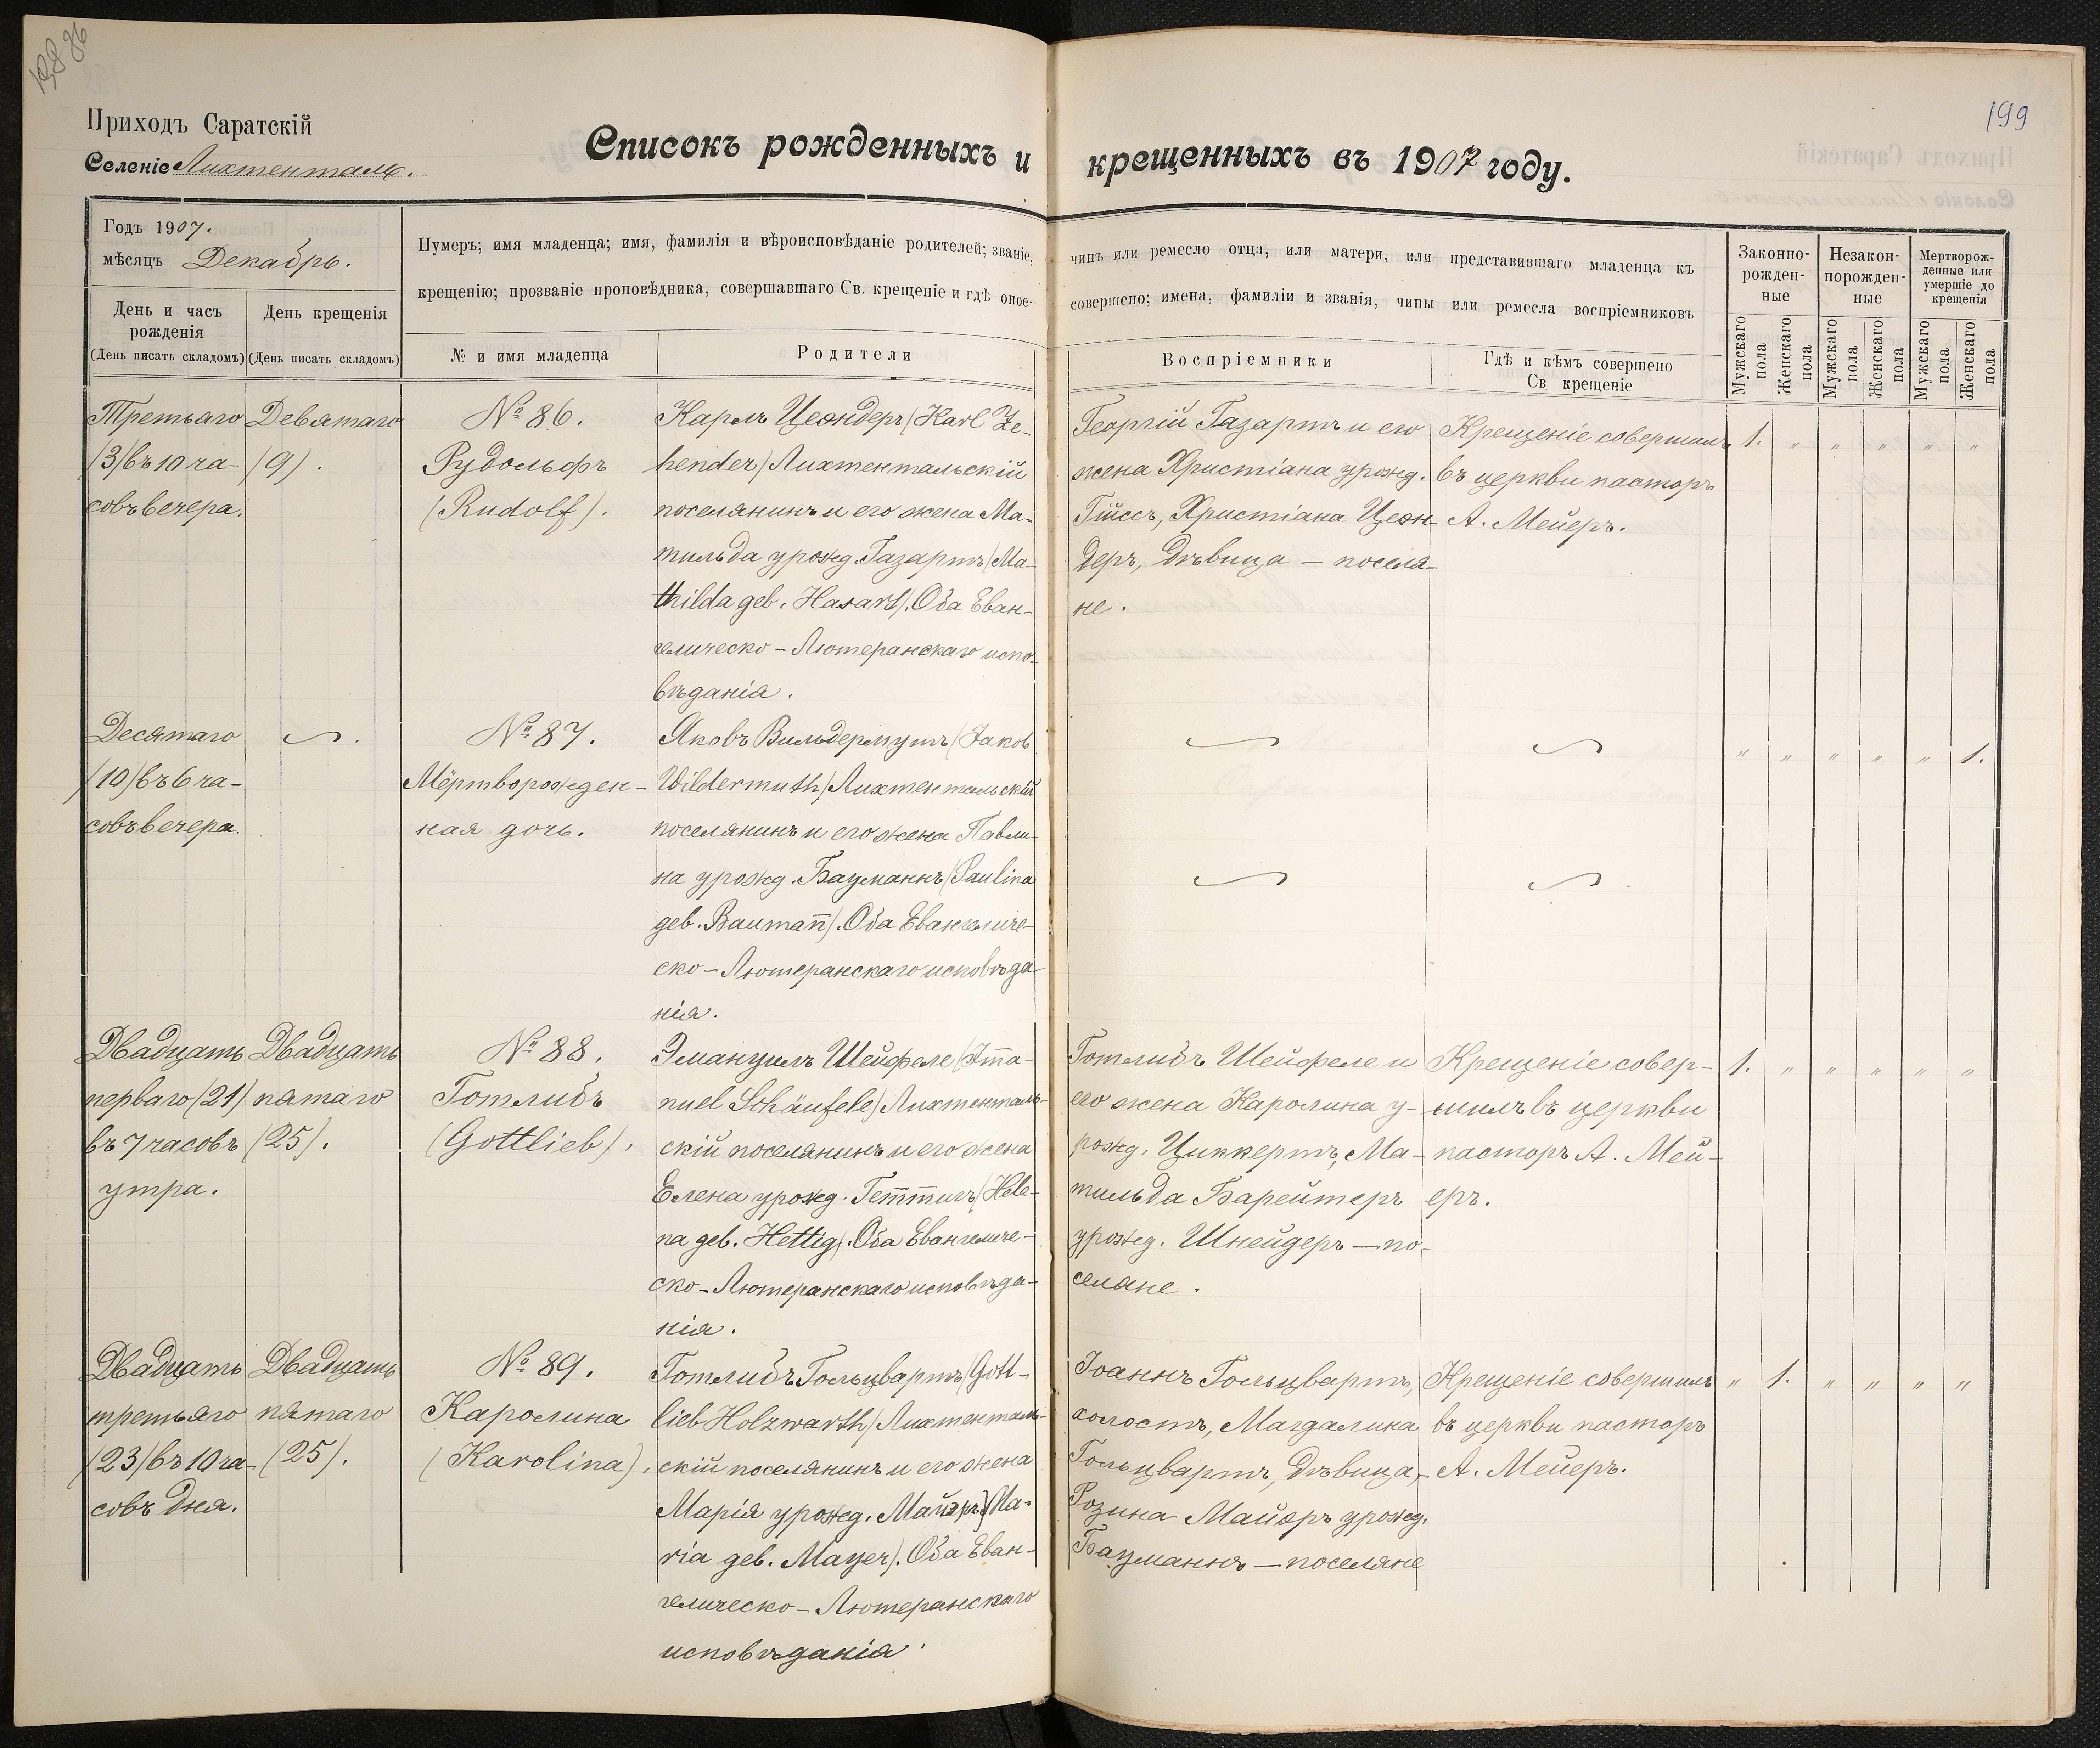 199
Приходъ Саратскій
Селеніе Лихтенталь.
Списокъ рожденныхъ и крещенныхъ въ 1907 году.
Годъ 1907.
мѣсяцъ Декабрь.
Нумеръ; имя младенца; имя, фамилія и вѣроисповѣданіе родителей; званіе, чинъ или ремесло отца, или матери, или представившаго младенца къ
крещенію; прозваніе проповѣдника, совершавшаго Св. крещеніе и гдѣ оное совершено; имена, фамиліи и званія, чины или ремесла воспріемниковъ
Законно-
рожден-
ные
Незакон-
норожден-
ные
Мертворож-
денные или
умершіе до
крещенія
День и часъ
рожденія
(День писать складомъ)
День крещенія
(День писать складомъ)
№ и имя младенца
Родители
Воспріемники
Гдѣ и кѣмъ совершено
Св крещеніе
Мужскаго
пола
Женскаго
пола
Мужскаго
пола
Женскаго
пола
Мужскаго
пола
Женскаго
пола
Третьяго
(3) въ 10 ча-
совъ вечера.
Девятаго
(9).
№ 86.
Рудольфъ
(Rudolf).
Карлъ Цеэндеръ (Karl Ze-
hender) Лихтентальскій
поселянинъ и его жена Ма-
тильда урожд. Газартъ (Ma-
thilda geb. Hasart). Оба Еван-
гелическо-Лютеранскаго испо-
вѣданія.
Георгій Газартъ и его
жена Христіана урожд.
Гйссъ, Христіана Цеэн-
деръ, дѣвица — поселя-
не.
Крещеніе совершилъ
въ церкви пасторъ
А. Мейеръ.
1. " " " " "
Десятаго
(10) въ 6 ча-
совъ вечера.
№ 87.
Мёртворожден-
ная дочь.
Яковъ Вильдермутъ (Jakob
Wildermuth) Лихтентальскій
поселянинъ и его жена Павли-
на урожд. Бауманнъ (Paulina
geb. Bauman̄). Оба Евангеличе-
ско-Лютеранскаго исповѣда-
нія.
" " " " " 1.
Двадцать
перваго (21)
въ 7 часовъ
утра.
Двадцать
пятаго
(25).
№ 88.
Готлибъ
(Gottlieb).
Эмануилъ Шейфеле (Im̄a-
nuel Schäufele) Лихтенталь-
скій поселянинъ и его жена
Елена урожд. Геттигъ (Hele-
na geb. Hettig). Оба Евангеличе-
ско-Лютеранскаго исповѣда-
нія.
Готлибъ Шейфеле и
его жена Каролина у-
рожд. Циккертъ, Ма-
тильда Барейтеръ
урожд. Шнейдеръ — по-
селяне.
Крещеніе совер-
шилъ въ церкви
пасторъ А. Мей-
еръ.
1. " " " " "
Двадцать
третьяго
(23) въ 10 ча-
совъ дня.
Двадцать
пятаго
(25).
№ 89.
Каролина
(Karolina).
Готлибъ Гольцвартъ (Gott-
lieb Holzwarth) Лихтенталь-
скій поселянинъ и его жена
Марія урожд. Майэръ (Ma-
ria geb. Mayer). Оба Еван-
гелическо-Лютеранскаго
исповѣданія.
Іоаннъ Гольцвартъ,
холостъ, Магдалина
Гольцвартъ, дѣвица,
Розина Майэръ урожд.
Бауманнъ — поселяне
Крещеніе совершилъ
въ церкви пасторъ
А. Мейеръ.
" 1. " " " "